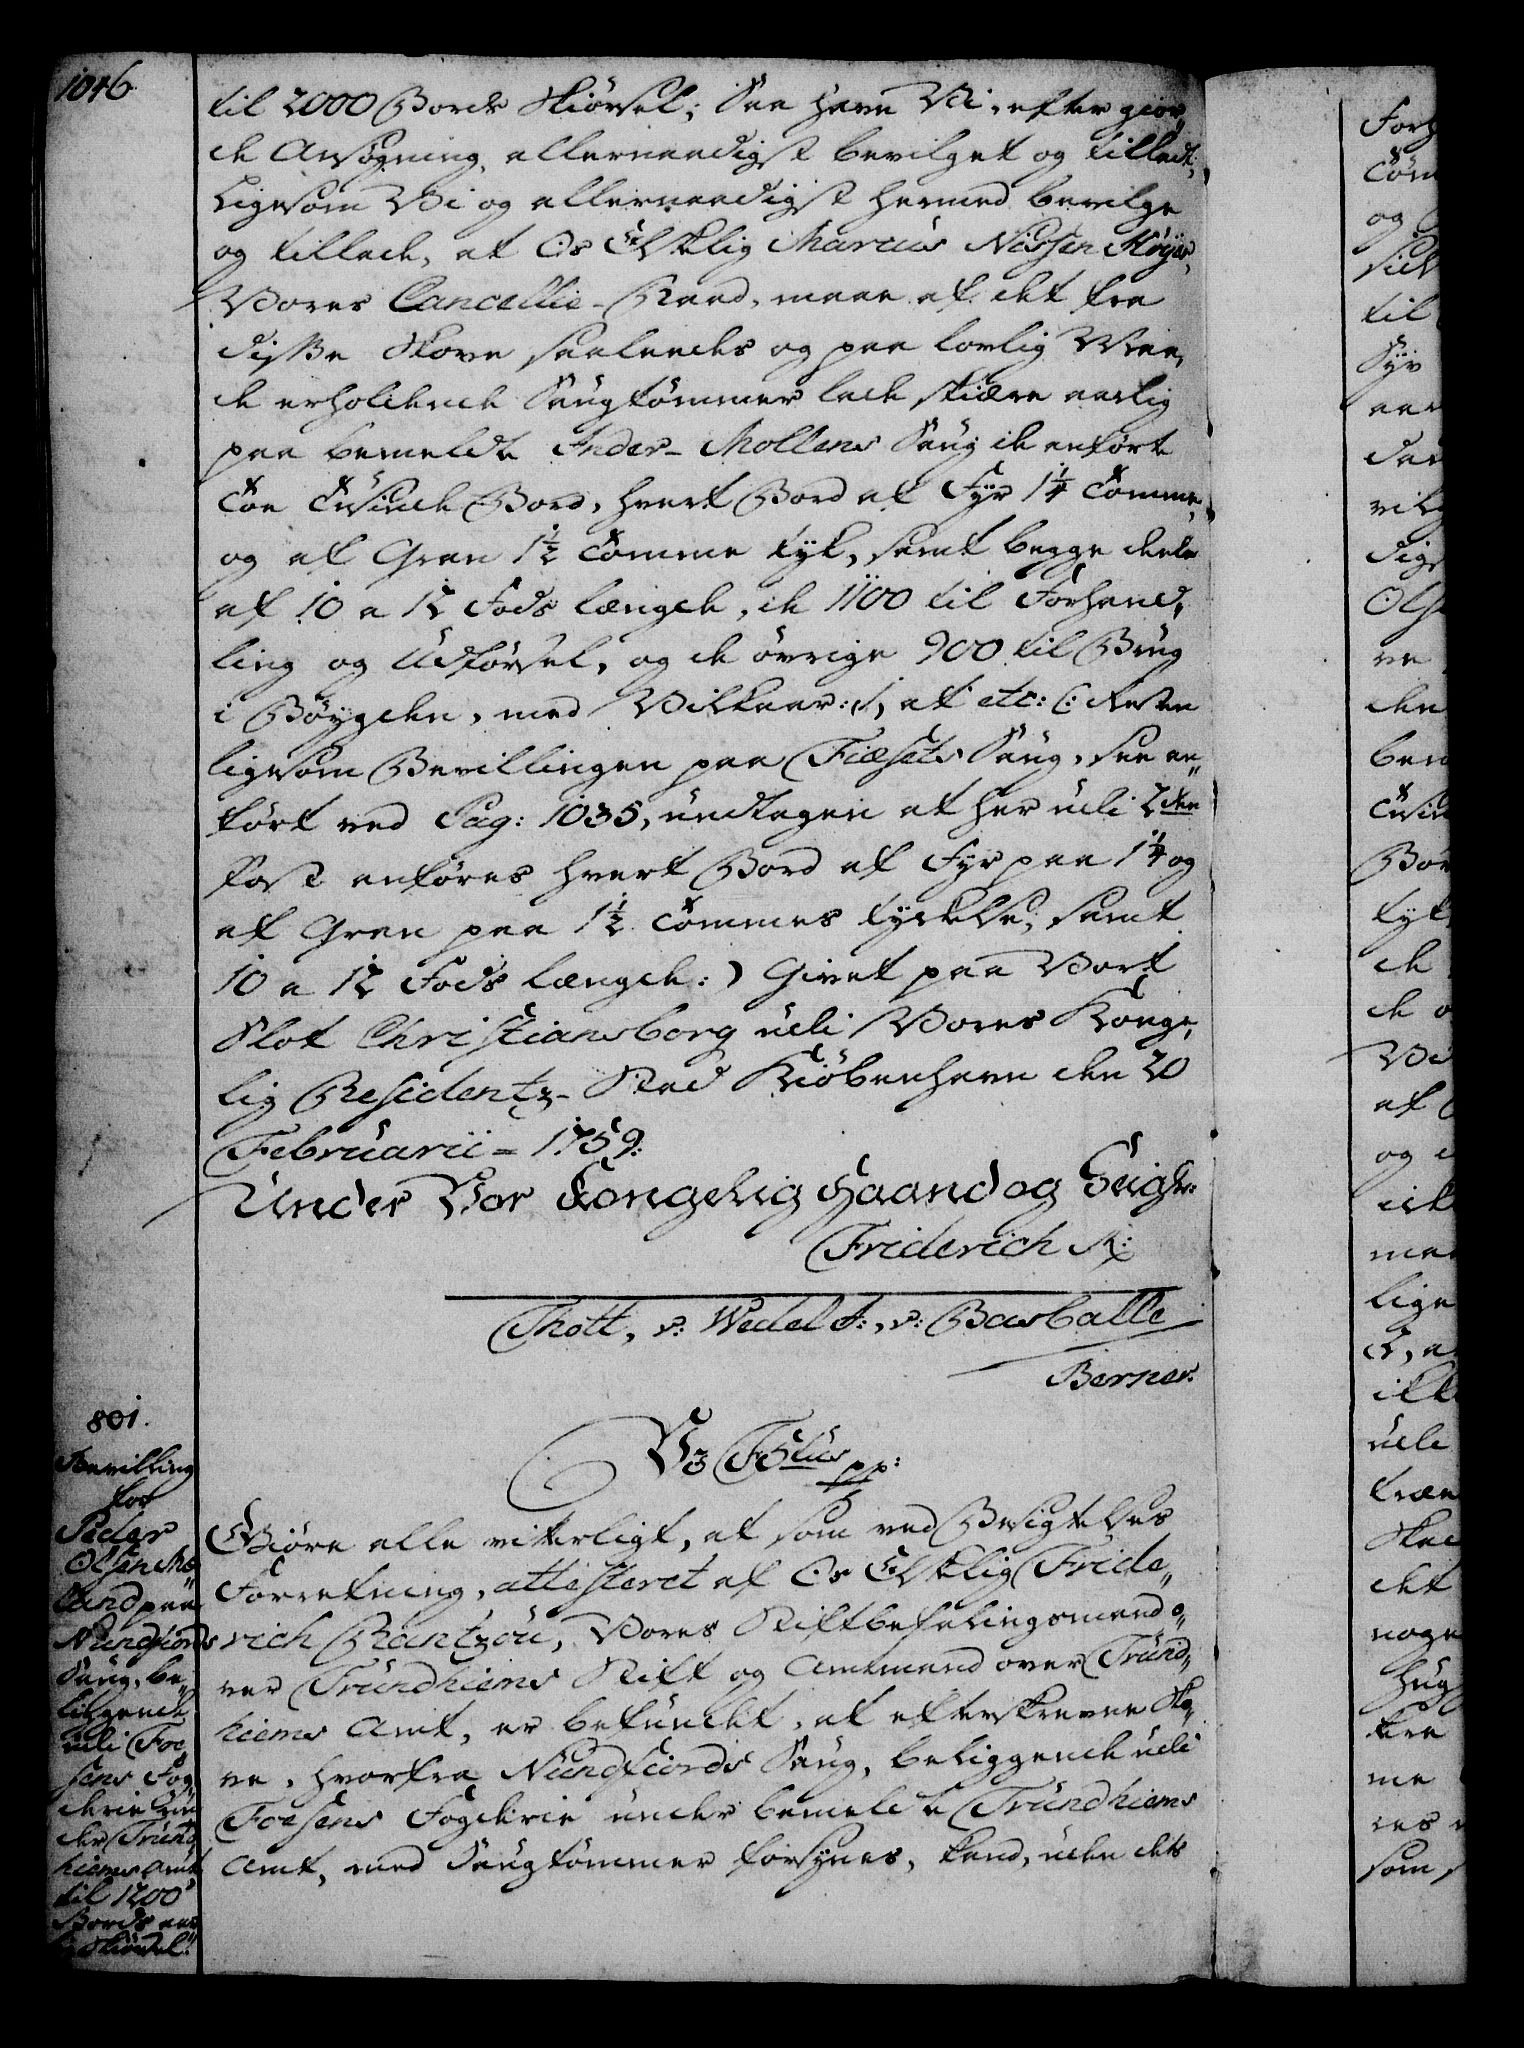 1046
til 2000 Bords Skiørsel; Saa have Vi, efter gior„
de Ansøgning, allernaadigst bevilget og tilladt,
Ligesom Vi og allernaadigst hermed bevilge
og tillade, at Os Elsklig Marcus Nissen Høyer,
Vores Cancellie-Raad, maae af det fra
diße Skove saaledes og paa lovlig Maa„
de erholdende Saugtømmer lade skiære aarlig
paa bemeldte Inder-Mollens Saug de anførte
Toe Tusinde Bord, hvert Bord af Fyr 1¼ Tomme,
og af Gran 1½ Tomme tyk, samt begge deele
af 10 a 12 Fods længde, de 1100 til Forhand„
ling og Udførsel, og de øvrige 900 til Brug
i Bøygden, med Vilkaar: 1, at etc: (: Resten
ligesom Bevillingen paa Fiæsets Saug, saa an„
ført ved Pag: 1035, undtagen at her udi 2den
Post anføres hvert Bord af Fyr paa 1¼ og
af Gran paa 1½ Tommes tykelse, samt
10 a 12 Fods længde:) Givet paa Vort
Slot Christiansborg udi Vores Konge„
lig Residentz-Stad Kiøbenhavn den 20
Februarii - 1759:
Under Vor Kongelig Haand og Seigl:
Friderich R:
Thott, v: Wedel F:, v: Barballe
Berner.
801.
Bevilling
for
Peder
Olsen Mo„
land paa
Nundfiords
Saug, be„
liggende
udi Foe„
sens Fog„
derie un„
der Trund„
hiems Amt
til 1200
Bords aar„
lig Skiørsel.
Vs F5tus pp:
Giøre alle vitterligt, at som ved Besigtelses
Forretning, attesteret af Os Elsklig Fride„
rich Rantzou, Vores Stiftbefalingsmand o„
ver Trundhiems Stift og Amtmand over Trund„
hiems Amt, er befundet, at efterskrevne Sko„
ve, hvorfra Nundfiords Saug, beliggende udi
Foesens Fogderie under bemeldte Trundhiems
Amt, med Saugtømmer forsynes, kand, uden dets
Forh
Tom
og
sid
til
Syv
aar
den
vil
dig
Olse
ve
den
bem
Tusin
Bor
tyk
de
de o
Vi
af
og
ik
maa
lige
2, a
ikke
udi
træn
Ska
det
noge
hug
fra
me
res
som